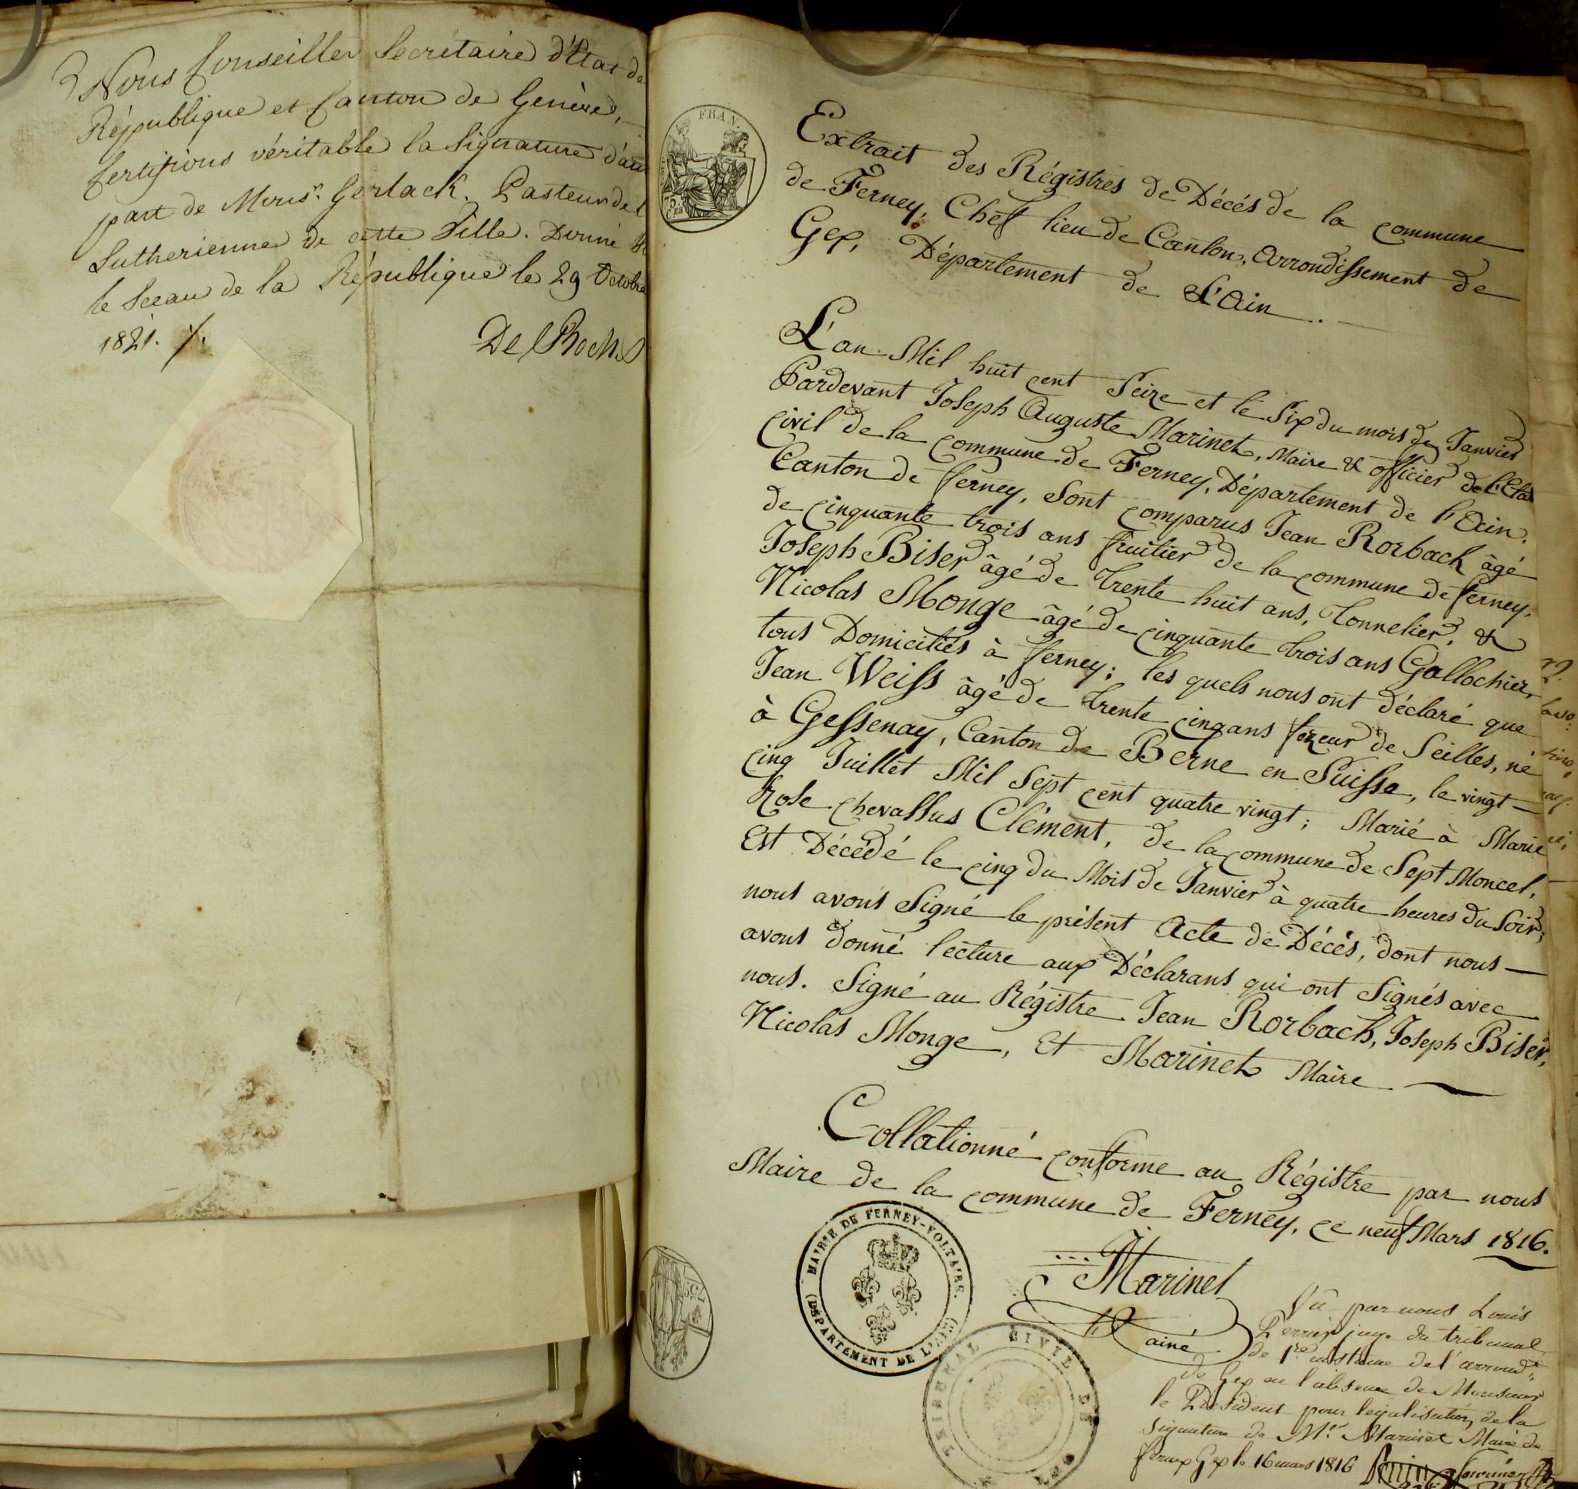 Nous Conseiller Secretaire d'Etat de
République et Canton de Genève,
Certifions véritable la Signature d'au
part de Monsr. Gerlack. Pasteur de l
Lutherienne de cette Ville. Donné
le Sceau de la République le 29 Octobre
1821. /.
De Roches
FRAN.
Extrait des Régistres de Décés de la commune
de Ferney, Chef lieu de Canton, Arrondissement de
Gex, Département de L'Ain.
L'an Mil huit cent Seize et le Six du mois de Janvier
Pardevant Joseph Auguste Marinet, Maire & officier de l'Etat
civil de la commune de Ferney, Département de l'Ain.
Canton de ferney, Sont comparus Jean Rorbach âgé
de cinquante trois ans fruitier de la commune de ferney,
Joseph Biser âgé de trente huit ans, Tonnelier, &
Nicolas Monge âgé de cinquante trois ans Gallochier,
tous Domiciliés à ferney; les quels nous ont déclaré que
Jean Weiss âgé de trente cinq ans fezeur de Seilles, né
à Gessenay, Canton de Berne en Suisse, le vingt
cinq Juillet Mil Sept cent quatre vingt; Marié à Marie
Rose chevassus Clément, de la commune de Sept Moncel,
Est Décédé le cinq du Mois de Janvier à quatre heures du Soir,
nous avons Signé le présent Acte de Décés, dont nous
avons donné lecture aux Déclarans qui ont Signés avec
nous. Signé au Régistre Jean Rorbach, Joseph Biser,
Nicolas Monge, Et Marinet Maire
Collationné conforme au Régistre par nous
Maire de la commune de Ferney, ce neuf Mars 1816.
MAIRIE DE FERNEY-VOLTAIRE.
(DÉPARTEMENT DE L'AIN)
Marinet
ainé
TRIBUNAL CIVIL DE GEX
Vu par nous Louis
Perrin juge du tribunal
de 1re instance de l'arrondt
de Gex en l'absence de Monsieur
le Président pour legalisation de la
Signature de Mr. Marinet Maire de
Gex le 16 mars 1816